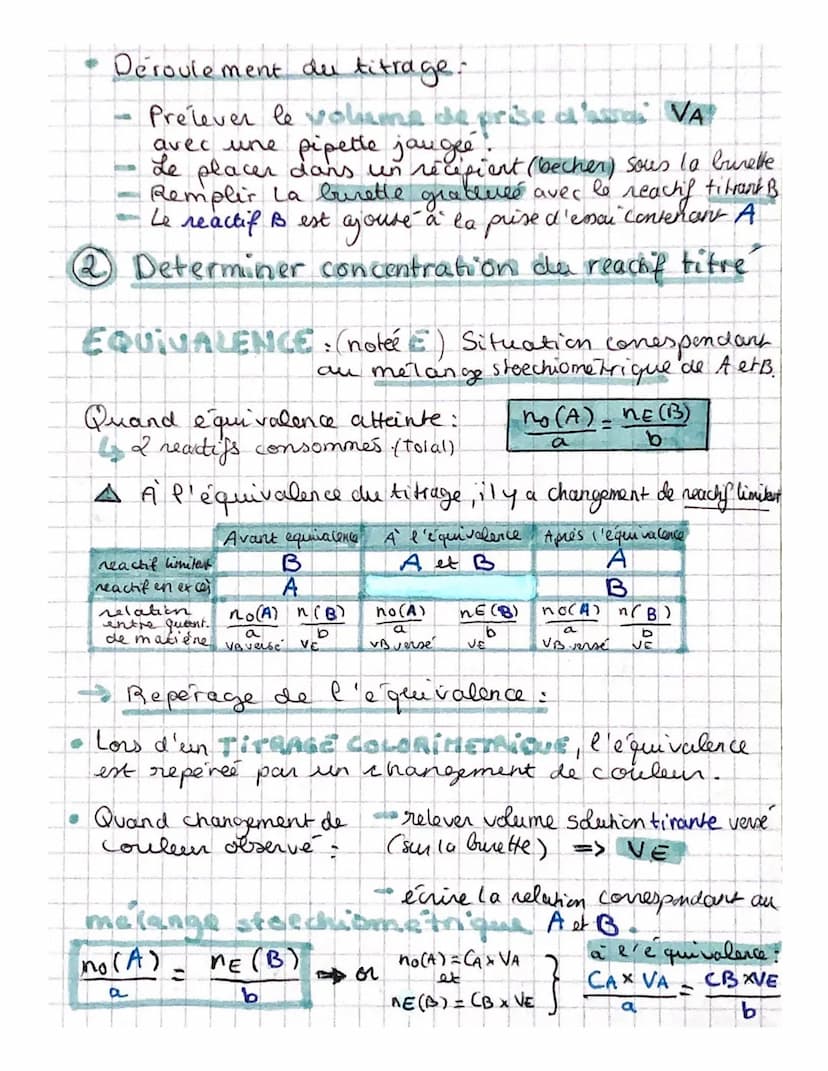 • Déroulement du titrage :
– Prélever le volume de prise d'essai VA
avec une pipette jaugée.
– Le placer dans un récipient (becher) sous la burette
– Remplir la burette graduée avec le reactif titrant B
– Le reactif B est ajouté à la prise d'essai contenant A
② Determiner concentration du reactif titré
EQUIVALENCE : (noteé E) Situation correspondant
au mélange stoechiométrique de A et B.
Quand équivalence atteinte :
↳ 2 reactifs consommés (Total)
no(A)/a = nE(B)/b
⚠ À l'équivalence du titrage, il y a changement de reactif limitant
Avant equivalence À l'équivalence Après l'équivalence
reactif limitant B A et B A
reactif en excès A B
relation entre quant. de matière no(A)/a n(B)/b no(A)/a nE(B)/b no(A)/a n(B)/b
VB versé VE VB versé VE VB versé VE
→ Repérage de l'équivalence :
• Lors d'un TITRAGE COLORIMETRIQUE, l'équivalence
est repéreé par un changement de couleur.
• Quand changement de
couleur observé :
→ relever volume solution tirante versé
(sur la burette) => VE
→ écrire la relation correspondant au
mélange stoechiométrique A et B.
no(A)/a = nE(B)/b ⇒ or
no(A) = CA x VA
et
nE(B) = CB x VE
à l'équivalence :
CA x VA/a = CB x VE/b